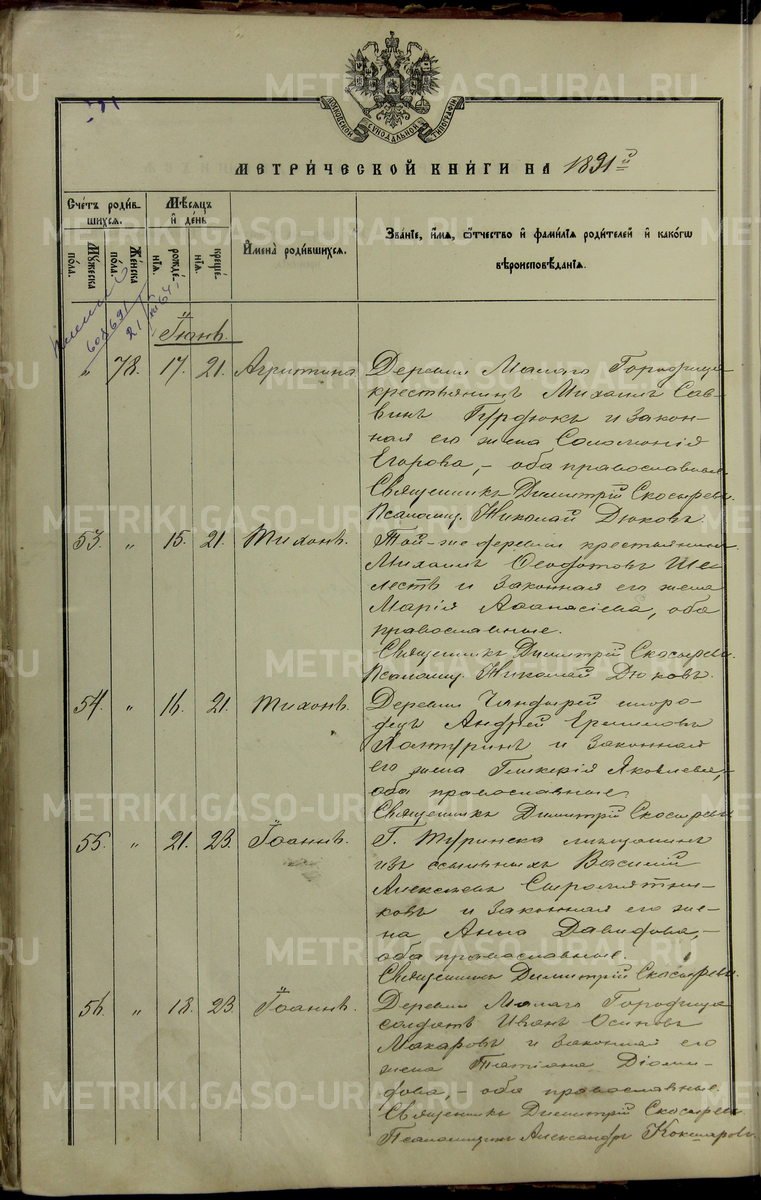 METRIKI.GASO-URAL.RU
МОСКОВСКОЙ СѴНОДАЛЬНОЙ ТИПОГРАФІИ
МЕТРИ́ЧЕСКОЙ КНИ́ГИ НА 1891й
Сче́тъ роди́в-
шихся.
Мѣ́сяцъ
и де́нь
Имена̀ роди́вшихся.
Зва́ніе, и́мя, ѻ҆́тчество и фами́лія роди́телей и како́гѡ
вѣроисповѣ́данія.
Мꙋ́жеска
по́ла.
Же́нска
по́ла.
рожде́-
нія.
креще́-
нія.
Іюнь
„ 78. 17. 21. Агрипина Деревни Малаго Городища
крестьянинъ Михаилъ Сав-
винъ Гурдюкъ и закон-
ная его жена Соломонія
Егорова, – оба православные.
Священникъ Димитрій Скосыревъ.
Псаломщ. Николай Дюковъ.
53. „ 15. 21. Тихонъ. Той-же деревни крестьянинъ
Михаилъ Ѳеодотовъ Ше-
лестъ и законная его жена
Марія Аѳанасіева, оба
православные.
Священникъ Димитрій Скосыревъ.
Псаломщ. Николай Дюковъ.
54. „ 16. 21. Тихонъ. Деревни Чандырей иноро-
децъ Андрей
и законная
его жена Гликерія Яковлева,
оба православные
Священникъ Димитрій Скосыревъ
55. „ 21. 23. Іоаннъ. Г. Туринска мѣщанинъ
изъ ссыльныхъ Василій
Алексѣевъ Сыромятни-
ковъ и законная его же-
на Анна Давидова, –
оба православные.
Священникъ Димитрій Скосыревъ.
56. „ 18. 23. Іоаннъ. Деревни Малаго Городища
солдатъ Иванъ Осиповъ
Макаровъ и законная его
жена Татіана Діоми-
дова, оба православные.
Священникъ Димитрій Скосыревъ.
Псаломщикъ Александръ Кокшаровъ.